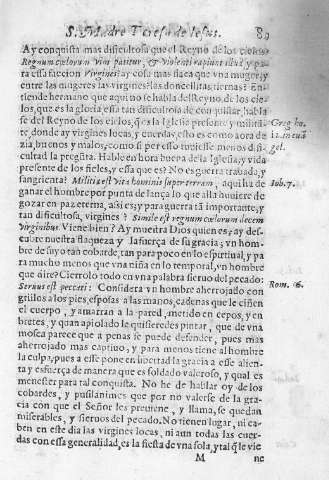 S. Madre Teresa de Iesus. 89
Ay conquista mas dificultosa que el Reyno de los cielos?
Regnum cœlorum vim patitur, & violenti rapiunt illud, y pa-
ra essa faccion Virgines? ay cosa mas flaca que vna muger, y
entre las mugeres las virgines? las donzellitas tiernas? En-
tiende hermano que aqui no se habla del Reyno de los cie-
los, que es la gloria essa tan dificultosa de conquistar, habla
se del Reyno de los cielos, q̃ es la Iglesia presente y milita-
te, donde ay virgines locas, y cuerdas, esto es como aora de
buenos y malos, como si per esso tuuiesse menos di-
ficultad la pregũta. Hable en hora buena de la Iglesia, y vida
presente de los fieles, y essa que es? No es guerra trabada, y
sangrienta? Militia est vita hominis super terram, aqui ha de
ganar el hombre por punta de lança lo que allà huuiere de
gozar en paz eterna, assi es; y para guerra tã importante, y
tan dificultosa, virgines? Simile est regnum cœlorum decem
Virginibus. Viene bien? Ay muestra Dios quien es; ay des-
cubre nuestra flaqueza y la fuerça de su gracia; vn hom-
bre de suyo tan cobarde, tan para poco en lo espiritual, y pa
ra mucho menos que vna niña en lo temporal, vn hombre
que dire? Cierrolo todo en vna palabra sieruo del pecado:
Seruus est peccati: Considera vn hombre aherrojado con
grillos a los pies, esposas a las manos, cadenas que le ciñen
el cuerpo, y amarran a la pared, metido en cepos, y en
bretes, y quan apiolado le quisieredes pintar, que de vna
mosca parece que a penas se puede defender, pues mas
aherrojado mas captiuo, y para menos tiene al hombre
la culpa, pues a esse pone en libertad la gracia a esse alien-
ta y esfuerça de manera que es soldado valeroso, y qual es
menester para tal conquista. No he de hablar oy de los
cobardes, y pusilanimes que por no valerse de la gra-
cia con que el Señor les preuiene, y llama, se quedan
miserables, y sieruos del pecado. No tienen lugar, ni ca-
ben en este dia las virgines locas, ni aun todas las cuer-
das con essa generalidad, es la fiesta de vna sola, y tal q̃ le vie
M ne
Greg. ho.
12. in euã
gel.
Iob. 7.
Rom. 6.